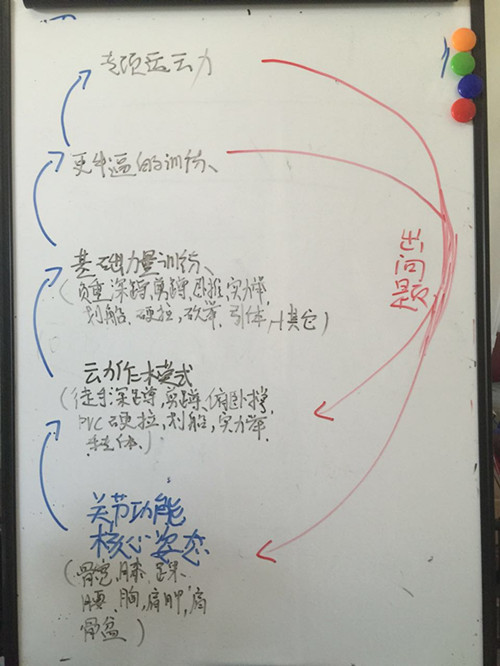 专项运动
更牛逼的训练、
基础力量训练、
(负重深蹲,箭蹲,卧推,实力举,
划船,硬拉,砍举,引体,+其它)
出问题
动作模式
(徒手:深蹲,箭蹲,俯卧撑,
PVC硬拉,划船,实力举,
转体.)
关节功能
核心姿态
(髋,膝,踝
腰,胸,肩胛,肩
骨盆)